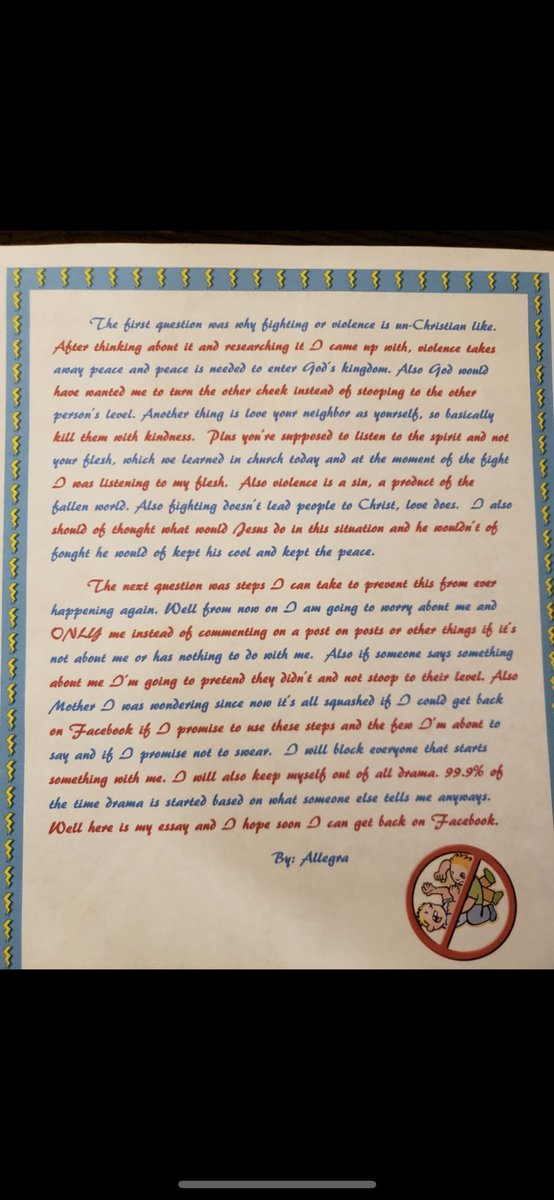 The first question was why fighting or violence is un-Christian like.
After thinking about it and researching it I came up with, violence takes
away peace and peace is needed to enter God's kingdom. Also God would
have wanted me to turn the other cheek instead of stooping to the other
person's level. Another thing is love your neighbor as yourself, so basically
kill them with kindness. Plus you're supposed to listen to the spirit and not
your flesh, which we learned in church today and at the moment of the fight
I was listening to my flesh. Also violence is a sin, a product of the
fallen world. Also fighting doesn't lead people to Christ, love does. I also
should of thought what would Jesus do in this situation and he wouldn't of
fought he would of kept his cool and kept the peace.
The next question was steps I can take to prevent this from ever
happening again. Well from now on I am going to worry about me and
ONLY me instead of commenting on a post on posts or other things if it's
not about me or has nothing to do with me. Also if someone says something
about me I'm going to pretend they didn't and not stoop to their level. Also
Mother I was wondering since now it's all squashed if I could get back
on Facebook if I promise to use these steps and the few I'm about to
say and if I promise not to swear. I will block everyone that starts
something with me. I will also keep myself out of all drama. 99.9% of
the time drama is started based on what someone else tells me anyways.
Well here is my essay and I hope soon I can get back on Facebook.
By: Allegra